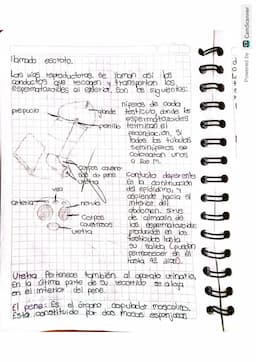 llamado escroto.
Las vías reproductoras se llaman así los
conductos que recogen y transportan los
espermatozoides al exterior. Son las siguientes:
prepucio
glande
frenillo
cuerpos caverno-
del pene
Uretra
vena
arteria
nervio
Cuerpos
cavernosos
uretra
de cada
testículo, donde los
espermatozoides
terminan el
Si
todos los túbulos
seminíferos se
colocaran unos
conducto deferente
Es la continuación
del epidídimo, y
asciende hacia el
interior del
abdomen. Sirve
de almacén de
los espermatozoides
producidos en los
testículos hasta
su salida (pueden
permanecer en él
hasta 42 días).
Uretra Pertenece también al aparato urinario.
En la última parte de su recorrido se aloja
en el interior del pene.
El pene: Es el órgano copulador masculino.
Está constituido por dos masas esponjosas
Powered by CamScanner